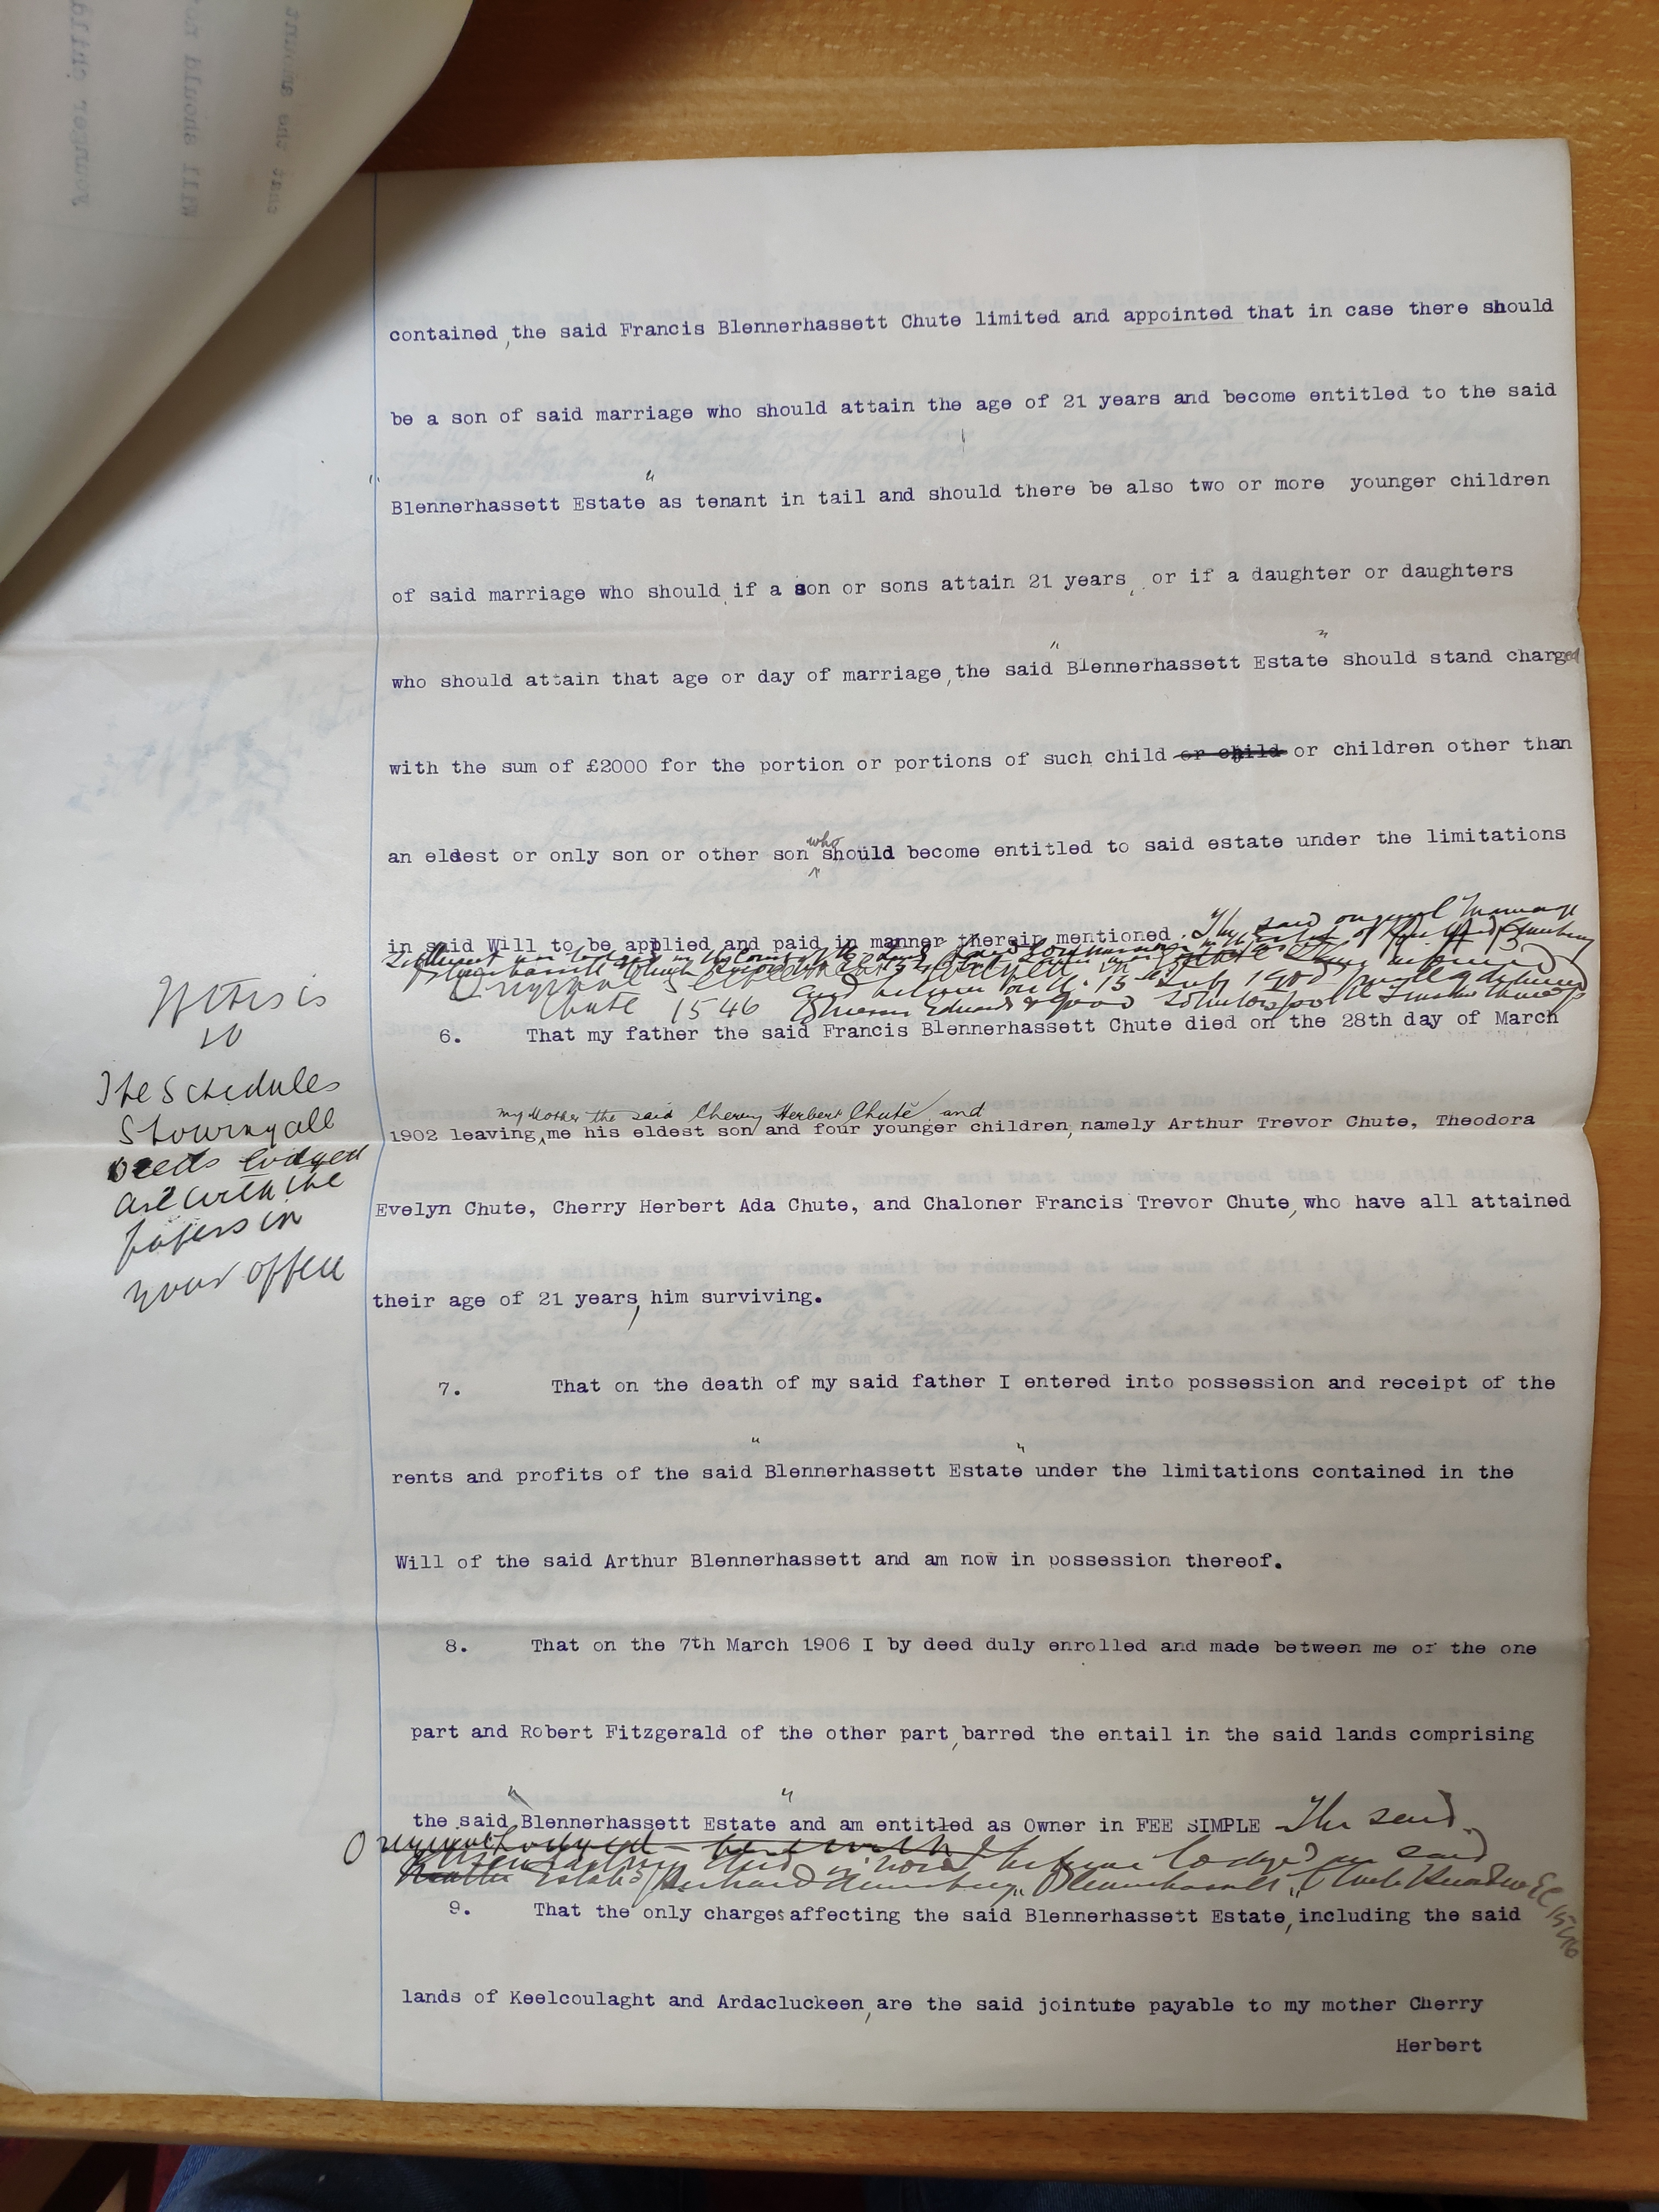 contained, the said Francis Blennerhassett Chute limited and appointed that in case there should
be a son of said marriage who should attain the age of 21 years and become entitled to the said
"Blennerhassett Estate" as tenant in tail and should there be also two or more younger children
of said marriage who should, if a son or sons attain 21 years, or if a daughter or daughters
who should attain that age or day of marriage, the said "Blennerhassett Estate" should stand charged
with the sum of £2000 for the portion or portions of such child or child or children other than
an eldest or only son or other son who should become entitled to said estate under the limitations
in said Will to be applied and paid in manner therein mentioned. The said original Marriage
Original
Chute 1546
6. That my father the said Francis Blennerhassett Chute died on the 28th day of March
my Mother the said Cherry Herbert Chute and
1902 leaving me his eldest son and four younger children, namely Arthur Trevor Chute, Theodora
Evelyn Chute, Cherry Herbert Ada Chute, and Chaloner Francis Trevor Chute, who have all attained
their age of 21 years, him surviving.
7. That on the death of my said father I entered into possession and receipt of the
rents and profits of the said "Blennerhassett Estate" under the limitations contained in the
Will of the said Arthur Blennerhassett and am now in possession thereof.
8. That on the 7th March 1906 I by deed duly enrolled and made between me of the one
part and Robert Fitzgerald of the other part, barred the entail in the said lands comprising
the said "Blennerhassett Estate" and am entitled as Owner in FEE SIMPLE The said
Original lodged herewith
Estate Richard Blennerhassett Chute
9. That the only charges affecting the said Blennerhassett Estate, including the said
lands of Keelcoulaght and Ardacluckeen, are the said jointute payable to my mother Cherry
Herbert
is
so
The Schedules
Showing all
Deeds lodged
are with the
papers in
your office